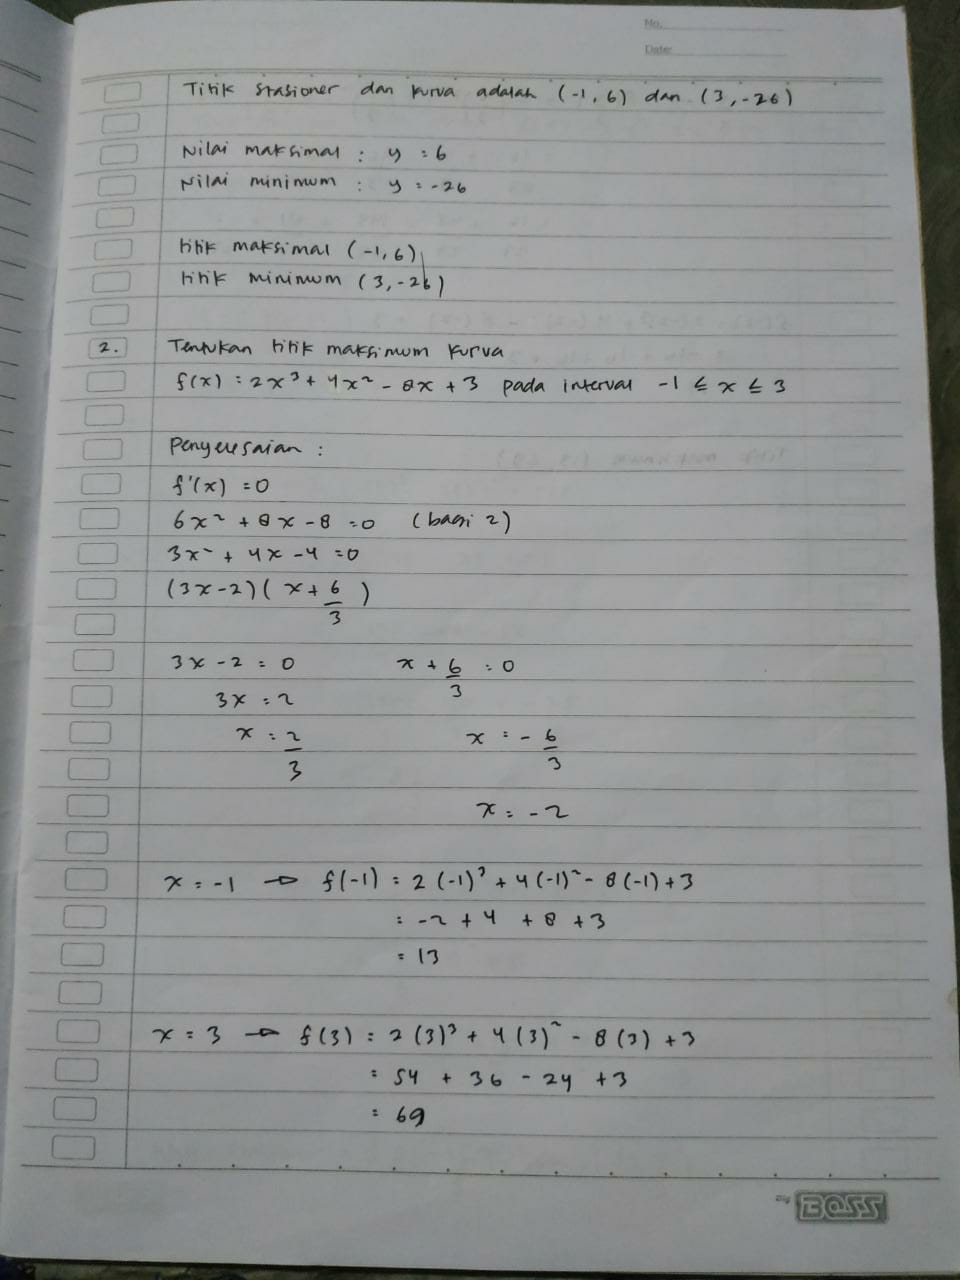 No.
Date:
Titik stasioner dan kurva adalah (-1, 6) dan (3, -26)
Nilai maksimal : y = 6
Nilai minimum : y = -26
titik maksimal (-1, 6)
titik minimum (3, -26)
2. Tentukan titik maksimum kurva
f(x) = 2x³ + 4x² - 8x + 3 pada interval -1 ≤ x ≤ 3
Penyelesaian :
f'(x) = 0
6x² + 8x - 8 = 0 (bagi 2)
3x² + 4x - 4 = 0
(3x - 2)(x + 6/3)
3x - 2 = 0 x + 6/3 = 0
3x = 2
x = 2/3 x = - 6/3
x = -2
x = -1 → f(-1) = 2(-1)³ + 4(-1)² - 8(-1) + 3
= -2 + 4 + 8 + 3
= 13
x = 3 → f(3) = 2(3)³ + 4(3)² - 8(3) + 3
= 54 + 36 - 24 + 3
= 69
Big BOSS